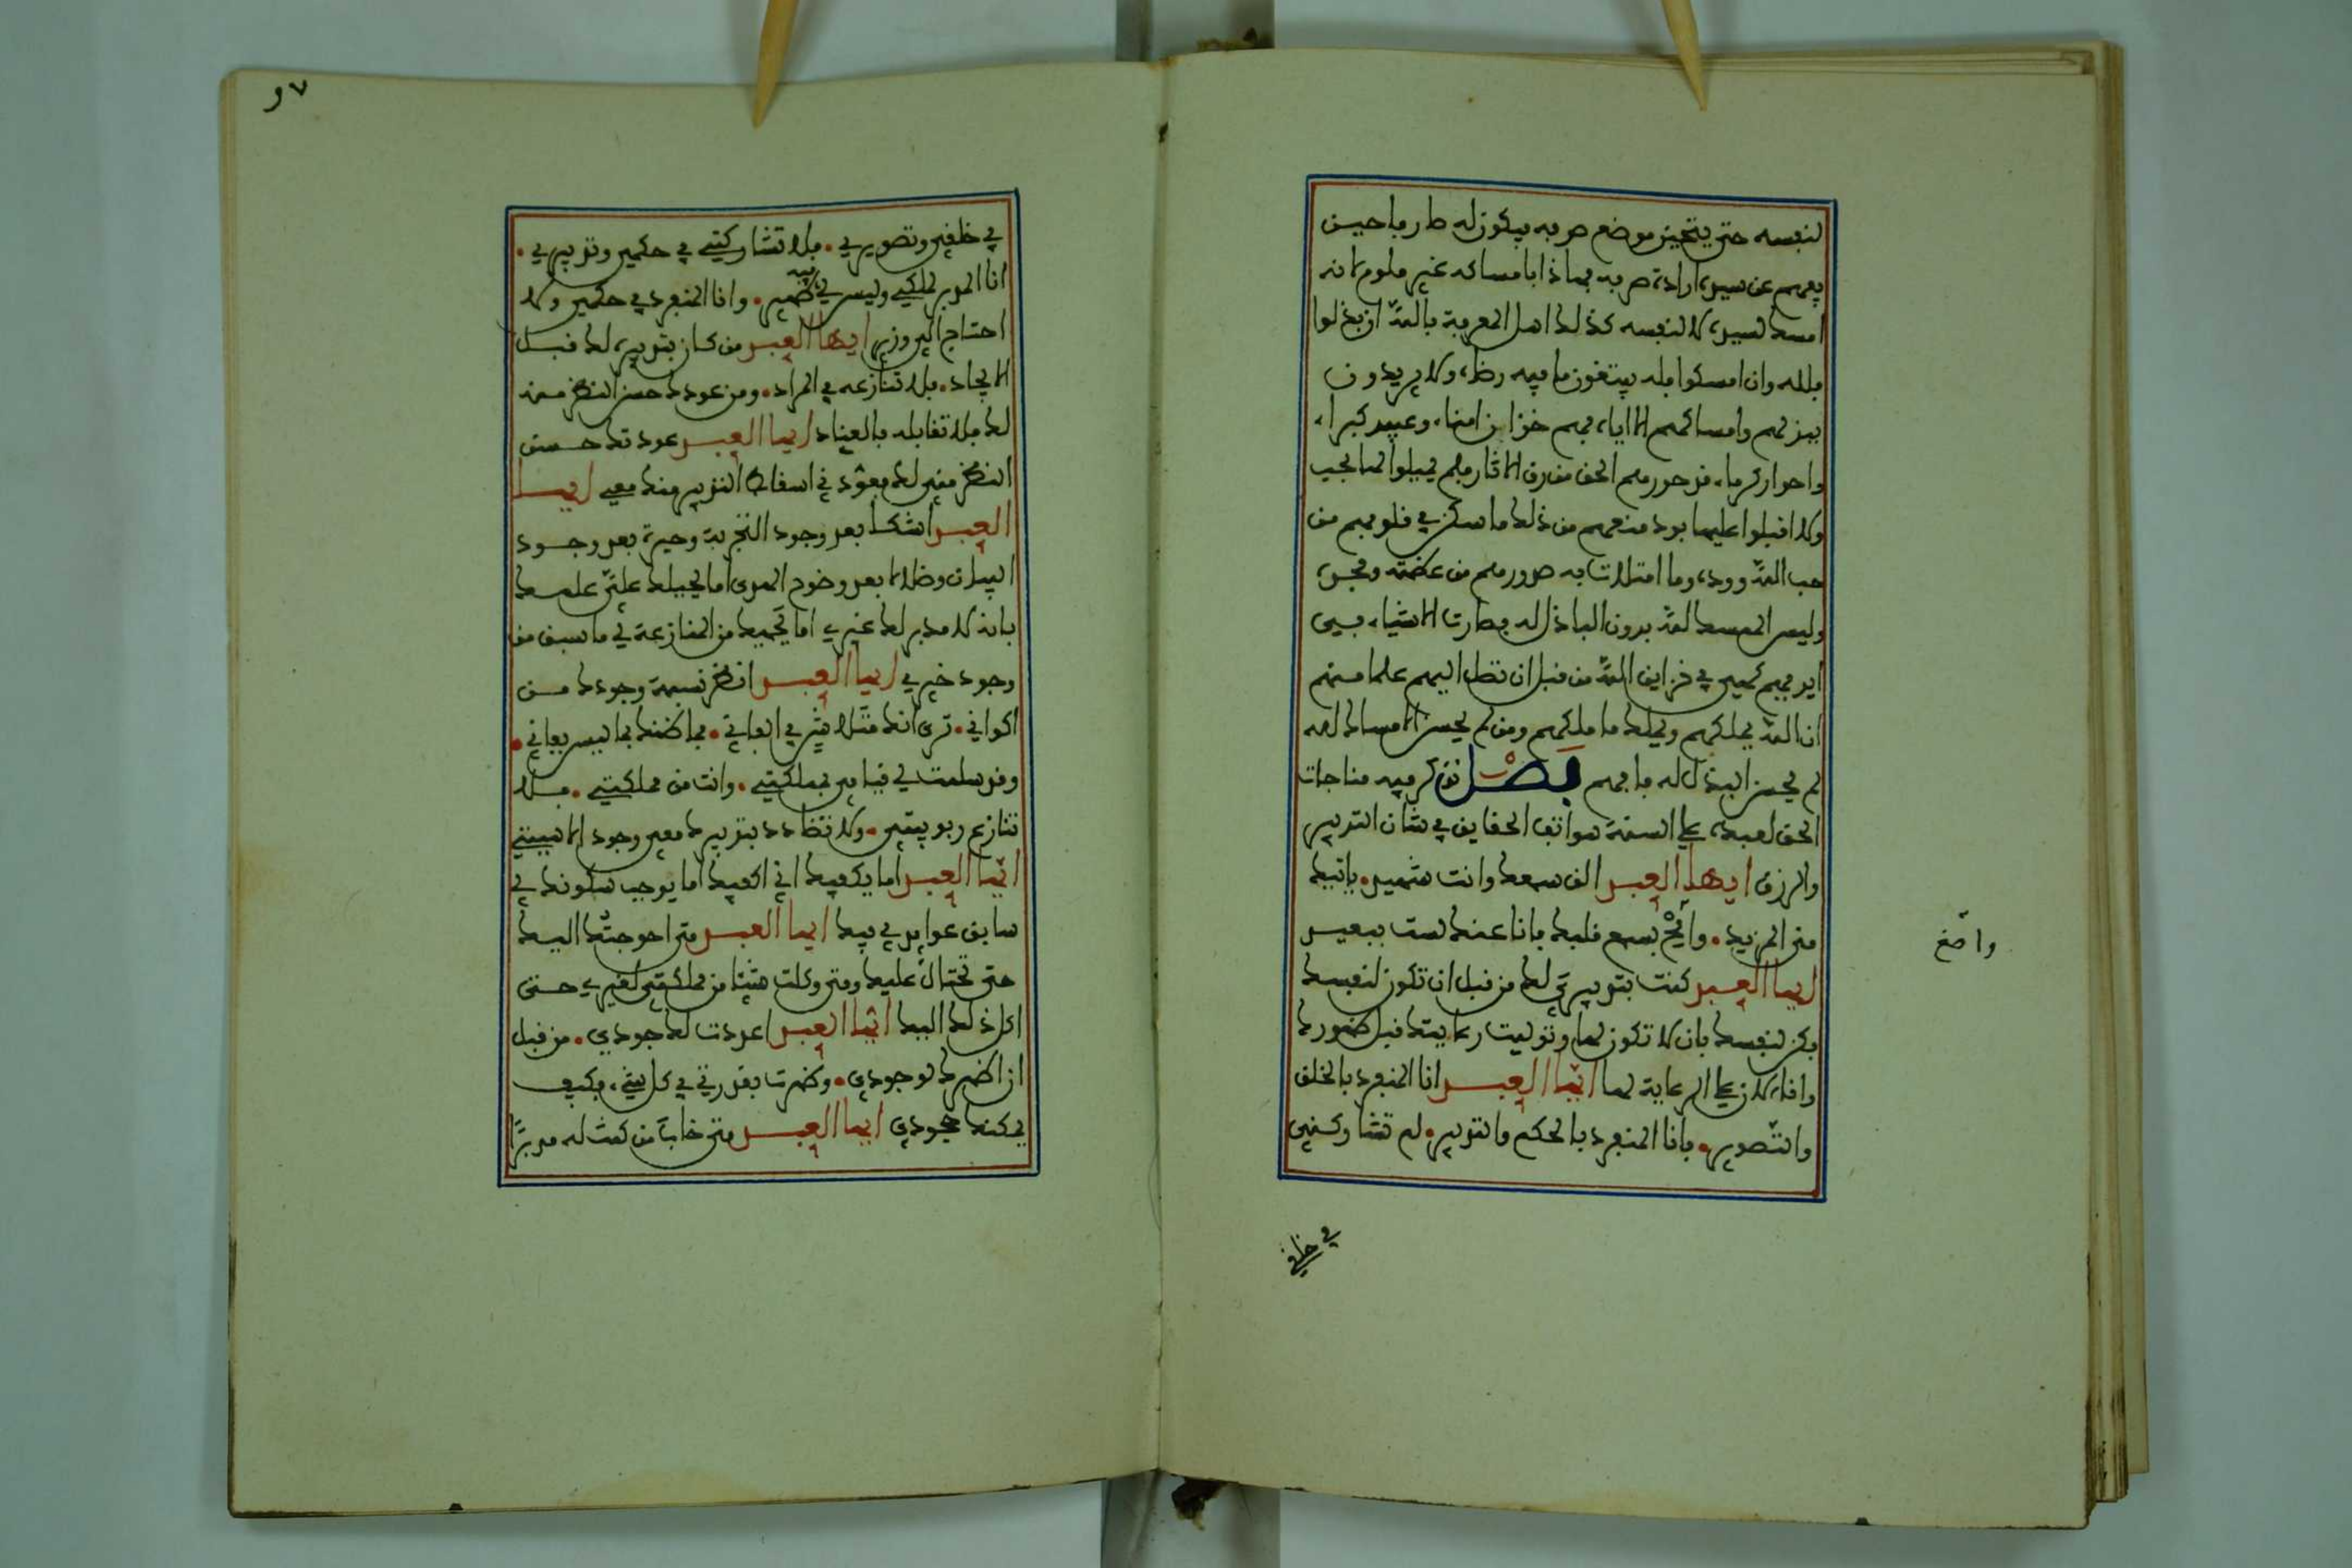 لنفسه حتى يتحين موضع صرفه فيكون له صارفا حين
يفهم عن سيده ارادة صرفه فهاذا بامساكه غير ملوم لانه
امسك لسيده لا لنفسه كذلك اهل المعرفة بالله ان بذلوا
فلله وان امسكوا فله يبتغون ما فيه رضاه ولا يريدون
ببذلهم وامساكهم الا اياه فهم خزان امناء وعبيد كبراء
واحرار كرماء قد حررهم الحق من رق الاثار فلم يميلوا اليها بحب
ولا اقبلوا عليها بود منعهم من ذلك ما سكن في قلوبهم من
حب الله ووده وما امتلات به صدورهم من عظمته ومجده
وليس الممسك لله بدون الباذل له فصارت الاشياء في
ايديهم كهي في خزاين الله من قبل ان تصل اليهم علما منهم
ان الله يملكهم ويملك ما ملكهم ومن لم يحسن الامساك لله
لم يحسن البذل له فافهم فصل نذكر فيه مناجات
الحق لعبده على السنة هواتف الحقايق في شان التدبير
والرزق ايها العبد الق سمعك وانت شهيد ياتيك
مني المزيد وانصح بسمع قلبك فانا عنك لست ببعيد
واصغ
ايها العبد كنت بتدبيري لك من قبل ان تكون لنفسك
فكن لنفسك بان لا تكون لها وتوليت رعايتك قبل ظهورك
وانا الان على الرعاية لها ايها العبد انا المنفرد بالخلق
والتصوير فانا المنفرد بالحكم والتدبير لم تشاركني
في خلقي
٩٧
في خلقي وتصويري فلا تشاركني في حكمي وتدبيري
انا المدبر لملكي وليس لي فيه ظهير وانا المنفرد في حكمي ولا
احتاج الى وزير ايها العبد من كان بتدبيره لك قبل
الايجاد فلا تنازعه في المراد ومن عودك حسن النظر منه
لك فلا تقابله بالعناد ايها العبد عودتك حسن
النظر مني لك فعود في اسقاط التدبير منك معي ايها
العبد اشكا بعد وجود التجربة وحيرة بعد وجود
البيان وضلالا بعد وضوح الهدى اما يحيلك علي علمك
بانه لا مدبر لك غيري اما يجبهك من المنازعة لي ما سبق من
وجود خيري ايها العبد انظر نسبة وجودك من
اكواني ترى انك متلاشي في الفاني فما ظنك بما ليس بفاني
وقد سلمت لي قيامي بمملكتي وانت من مملكتي فلا
تنازع ربوبيتي ولا تضادد بتدبيرك معي وجود الاهيتي
ايها العبد اما يكفيك اني اكفيك اما يوجب سكونك لي
سابق عوايدي فيك ايها العبد متى احوجتك اليك
حتى تحتال عليك ومتى وكلت شيئا من مملكتي لغيري حتى
اكل ذلك اليك ايها العبد اعددت لك جودي من قبل
ان اظهرك لوجودي وظهرت بقدرتي في كل شيء فكيف
يمكنك جحودي ايها العبد متى خاب من كنت له مدبرا